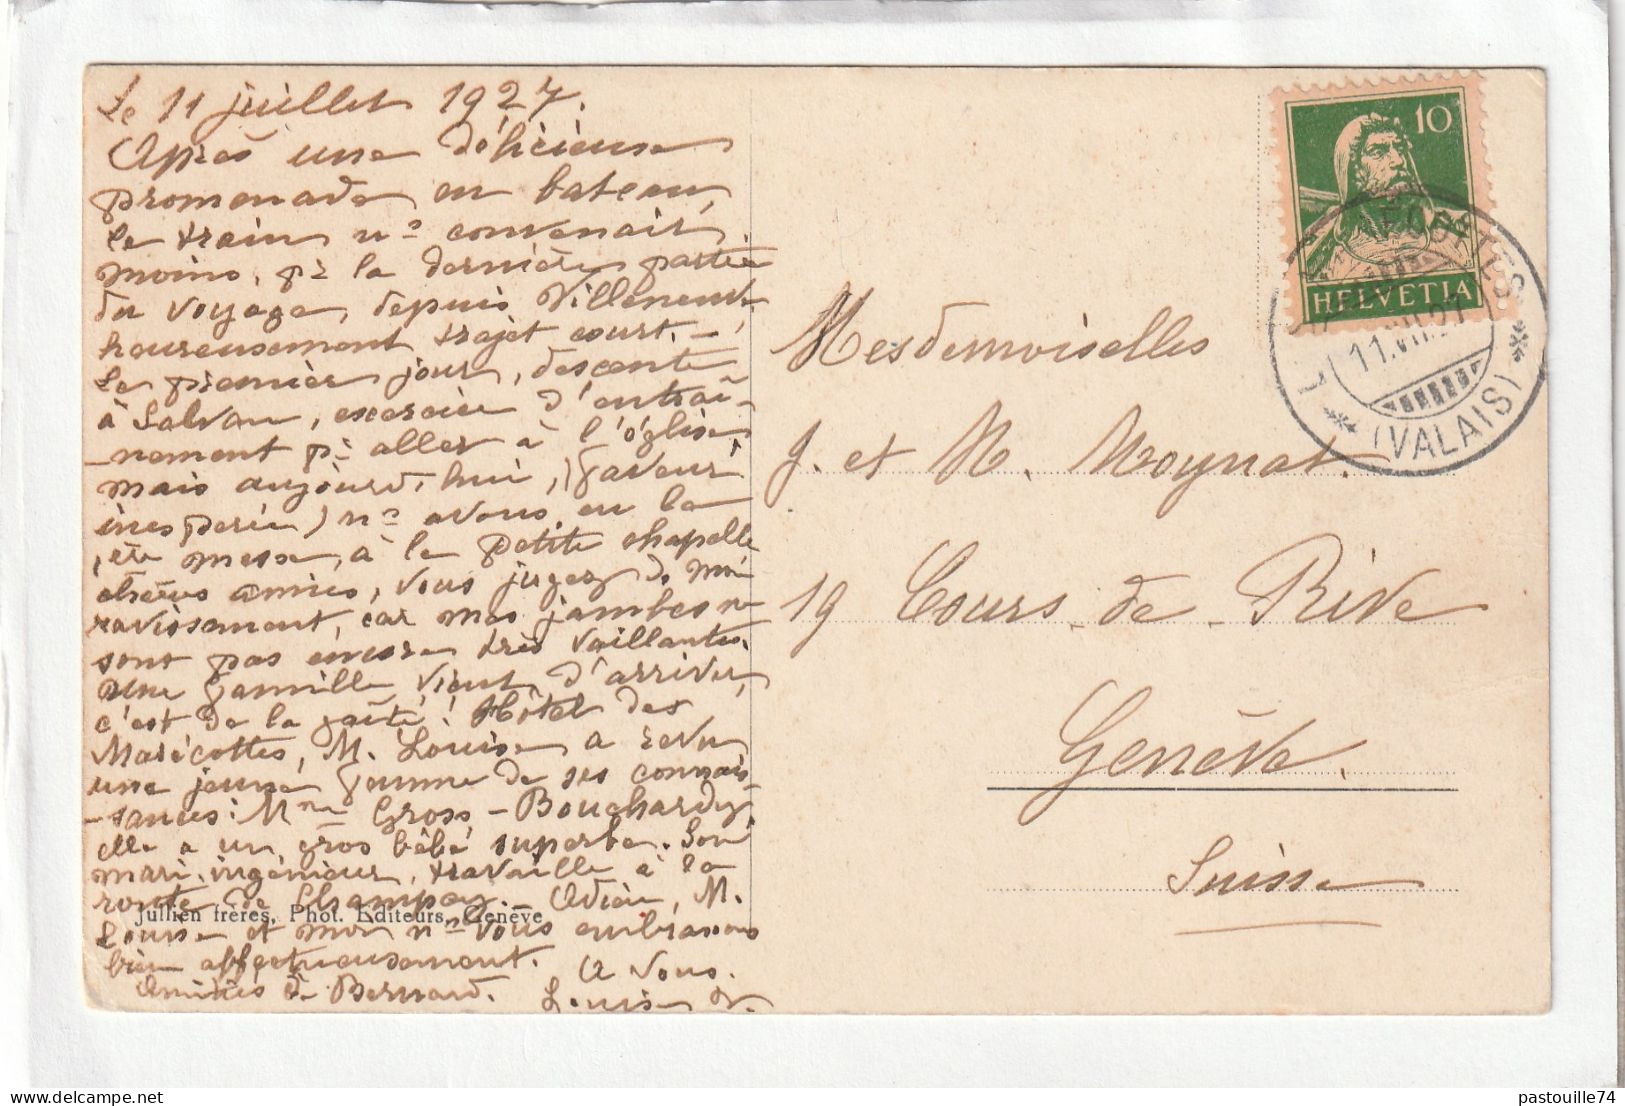 Le 11 juillet 1927.
Après une délicieuse
promenade en bateau,
le train ns convenait
moins, pr la dernière partie
du voyage, depuis Villeneuve,
heureusement trajet court. -
Le premier jour, descente
à Salvan, exercice d'entraî-
-nement pr aller à l'église,
mais aujourd'hui, (faveur
inespérée) ns avons eu la
Ste messe, à la petite chapelle
chères amies, vous jugez de mon
ravissement, car mes jambes ne
sont pas encore très vaillantes.
Une famille vient d'arriver,
c'est de la gaîté! Hôtel des
Marécottes, M. Louise a revu
une jeune femme de ses connais-
-sances: Mme Gross-Bouchardy
elle a un gros bébé superbe. Son
mari, ingénieur, travaille à la
route de Champex. Adieu, M.
Louise et moi ns vous embrassons
bien affectueusement.
Amitiés de Bernard.
A vous.
Louise
Jullien frères, Phot. Editeurs, Genève
10
HELVETIA
11.VII.27
(VALAIS)
Mesdemoiselles
J. et M. Moynat.
19 Cours-de-Rive
Genève.
Suisse
pastouille74